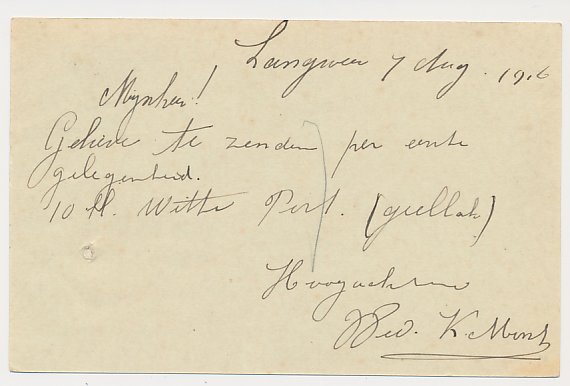 Langweer 7 Aug. 1916
Mijnheer!
Gelieve te zenden per eerste
gelegenheid.
10 fl. Witte Port. (geellak)
Hoogachtend
Wed. K.